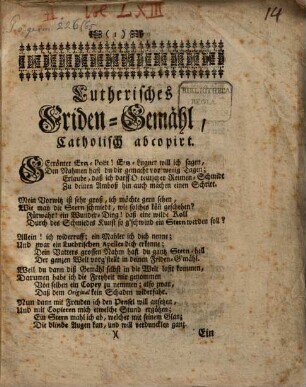 14
(1)
BIBLIOTHECA
REGIA
Lutherisches
Friden-Gemähl,
Catholisch abcopirt.
GEkrönter Erz-Poët! Erz-Lugner will ich sagen,
Den Nahmen hast du dir gemacht vor wenig Tagen;
Erlaube, daß ich darff O teutscher Reimen-Schmidt
Zu deinem Amboß hin auch machen einen Schritt.
Mein Vorwitz ist sehr groß, ich möchte gern sehen,
Wie man die Stern schmiedt, wie solches kan geschehen?
Fürwahr! ein Wunder-Ding! daß eine wilde Koll
Durch des Schmiedes Kunst so g'schwind ein Stern werden soll?
Allein! ich widerruff; ein Mahler ich dich nenne;
Und zwar ein Lutherischen Apelles dich erkenne;
Dein Vatters grossen Nahm hast du gantz Stern/hell
Der gantzen Welt vorg'stellt in deinem Friden-G'mähl.
Weil du dann diß Gemähl selbst in die Welt lasst kommen,
Darumen habe ich die Freyheit mir genommen
Von selben ein Copey zu nemmen; also zwar,
Daß dem Original kein Schaden widerfahr.
Nun dann mit Freuden ich den Pensel will ansetzen,
Und mit Copieren mich etwelche Stund ergötzen;
Ein Stern mahl ich ab, welcher mit seinem Glantz
Die blinde Augen kan, und will verduncklen gantz.
X
Ein